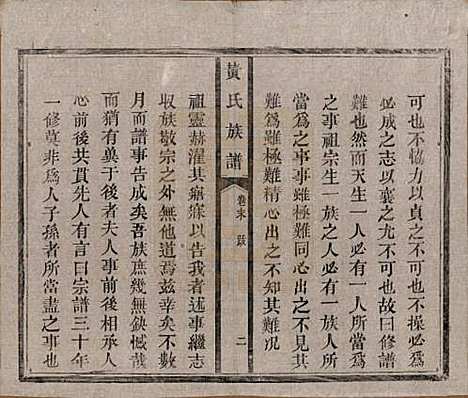 可也不協力以貞之不可也不操必為
必成之志以襄之尤不可也故曰修譜
難也然而天生一人必有一人所當為
之事祖宗生一族之人必有一族人所
當為之事事雖極難同心出之不見其
難為雖極難精心出之不知其難況
黃氏族譜
卷末
跋
二
祖靈赫濯其寤寐以告我者述事繼志
收族敬宗之外無他道焉茲幸矣不數
月而譜事告成矣吾族庶幾無缺憾哉
而猶有冀于後者夫人事前後相承人
心前後共貫先人有言曰宗譜三十年
一修莫非為人子孫者所當盡之事也